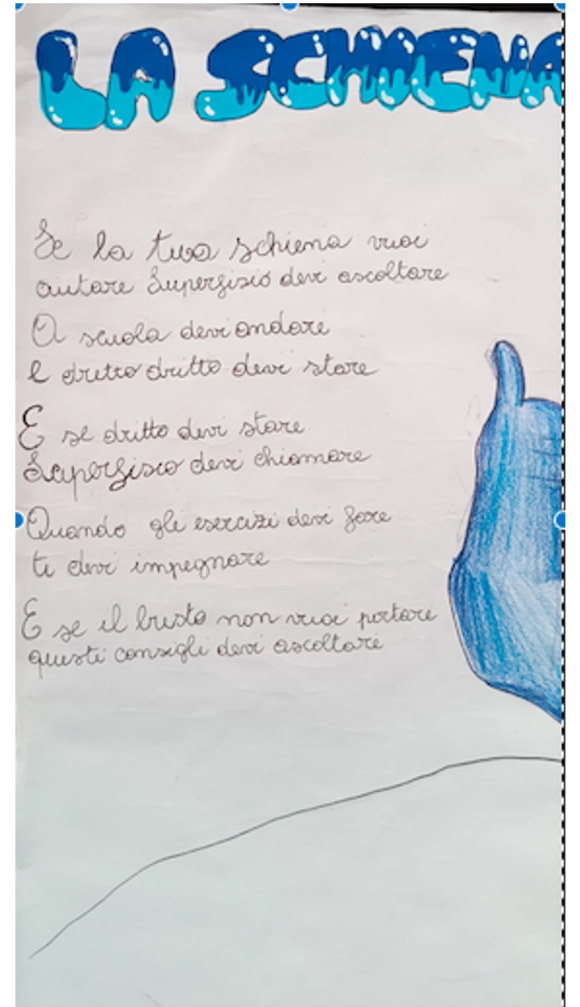 LA SCHIENA
Se la tua schiena vuoi
aiutare Superfisio devi ascoltare
A scuola devi andare
E dritto dritto devi stare
E se dritto devi stare
Superfisio devi chiamare
Quando gli esercizi devi fare
ti devi impegnare
E se il busto non vuoi portare
questi consigli devi ascoltare